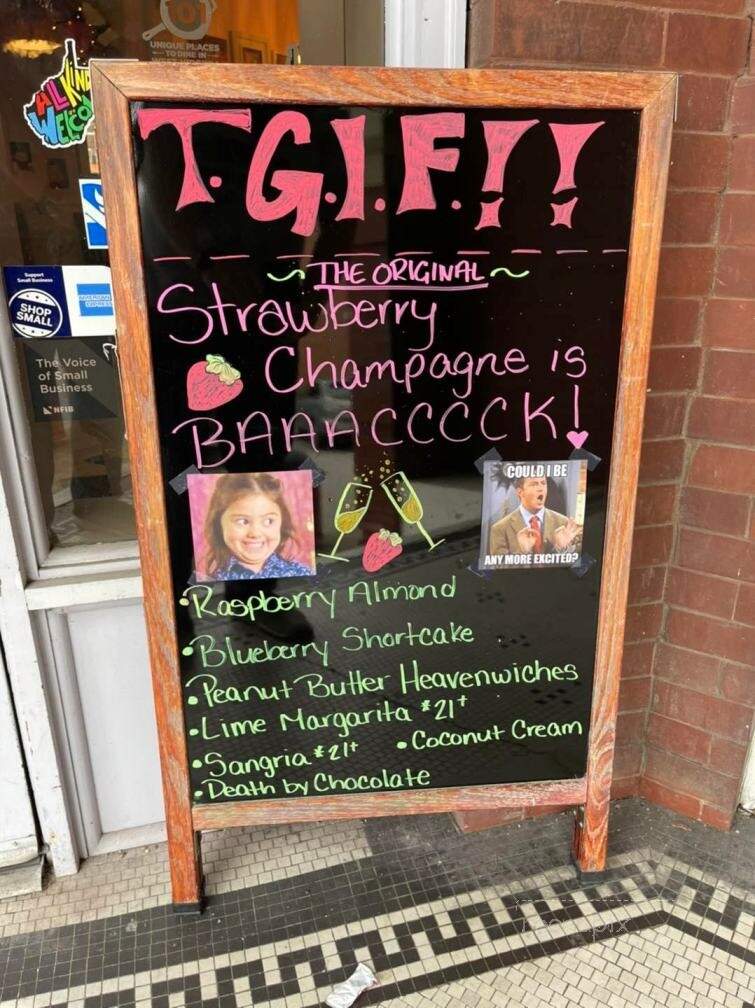 101
UNIQUE PLACES
TO DINE IN
ALL KINDS
WELCOME
Support
Small Business
SHOP
SMALL
AMERICAN
EXPRESS
The Voice
of Small
Business
NFIB
T.G.I.F.!!
~ THE ORIGINAL ~
Strawberry
Champagne is
BAAACCCCK!
COULD I BE
ANY MORE EXCITED?
•Raspberry Almond
•Blueberry Shortcake
•Peanut Butter Heavenwiches
•Lime Margarita *21+
•Sangria *21+ •Coconut Cream
•Death by Chocolate